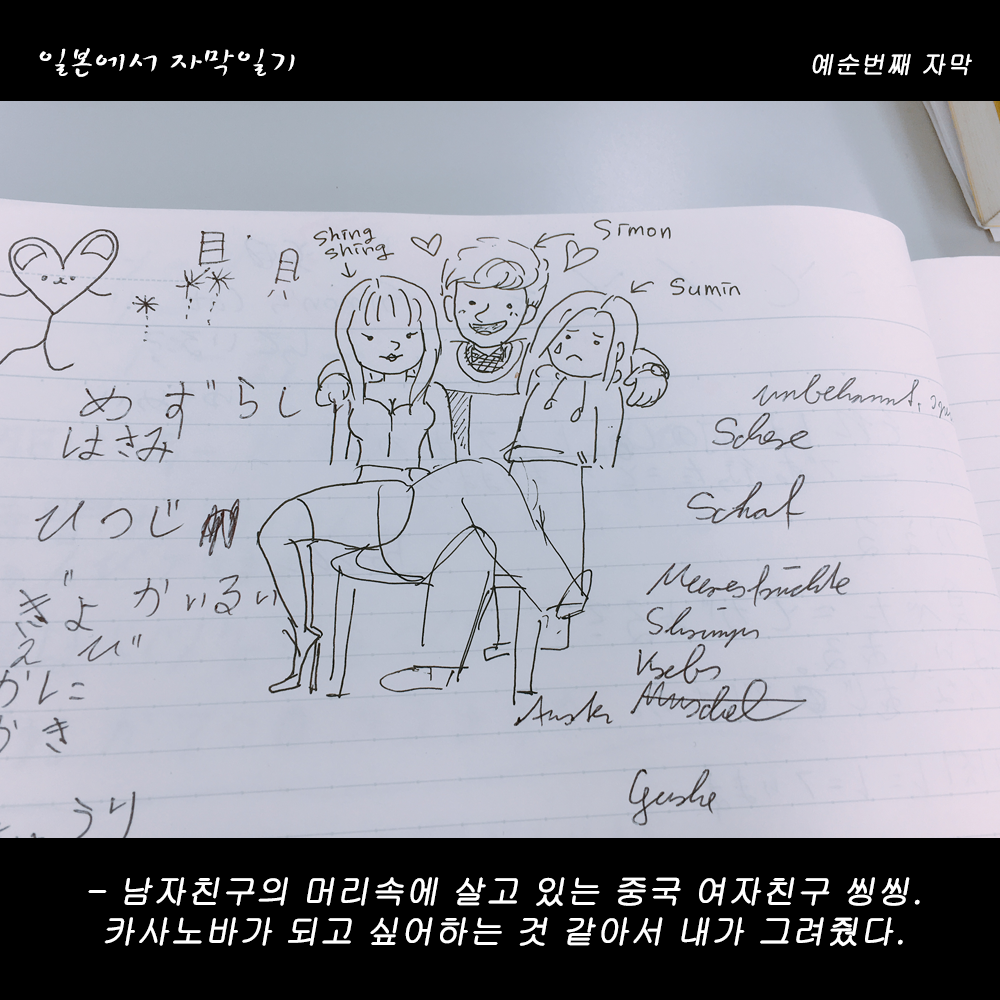 일본에서 자막일기
예순번째 자막
目
月
Shing
shing
Simon
Sumin
めずらし
はさみ
unbekannt,
Schere
ひつじ
Schaf
ぎょかいるい
Meeresfrüchte
えび
Shrimps
かに
Krebs
かき
Auster
Muschel
うり
Gurke
- 남자친구의 머리속에 살고 있는 중국 여자친구 씽씽.
카사노바가 되고 싶어하는 것 같아서 내가 그려줬다.